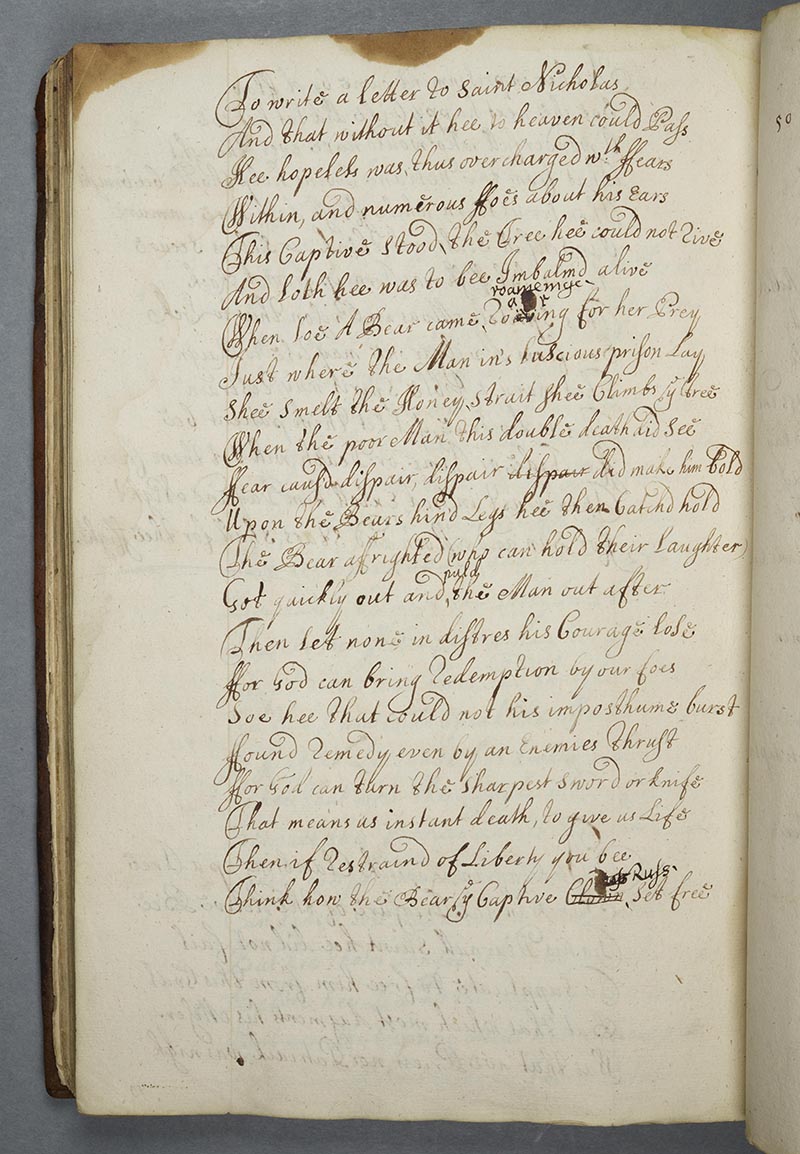 To write a letter to Saint Nicholas
And that without it hee to heaven could Pass
Hee hopeless was, thus overcharged wth ffears
Within, and numerous ffoes about his Ears
This Captive stood, the Tree hee could not Rive
And loth hee was to bee Imbalmd alive
roameinge
When loe A Bear came, for her Prey
Just where the Man in's luscious prison Lay
Shee Smelt the Honey, strait shee Climbs ye tree
When the poor Man, this double death did See
ffear causd dispair, dispair dispair did make him bold
Upon the Bears hind Legs hee then Catchd hold
The Bear affrighted (who can hold their laughter)
puld
Got quickly out and, the Man out after
Then let none in distres his Courage lose
ffor God can bring Redemption by our foes
Soe hee that could not his imposthume burst
ffound Remedy even by an Enemies thrust
ffor God can turn the Sharpest Sword or knife
That means us instant death, to give us Life
Then if Restraind of Liberty you bee
Russ
Think how the Bear ye Captive Clown, Set free
50